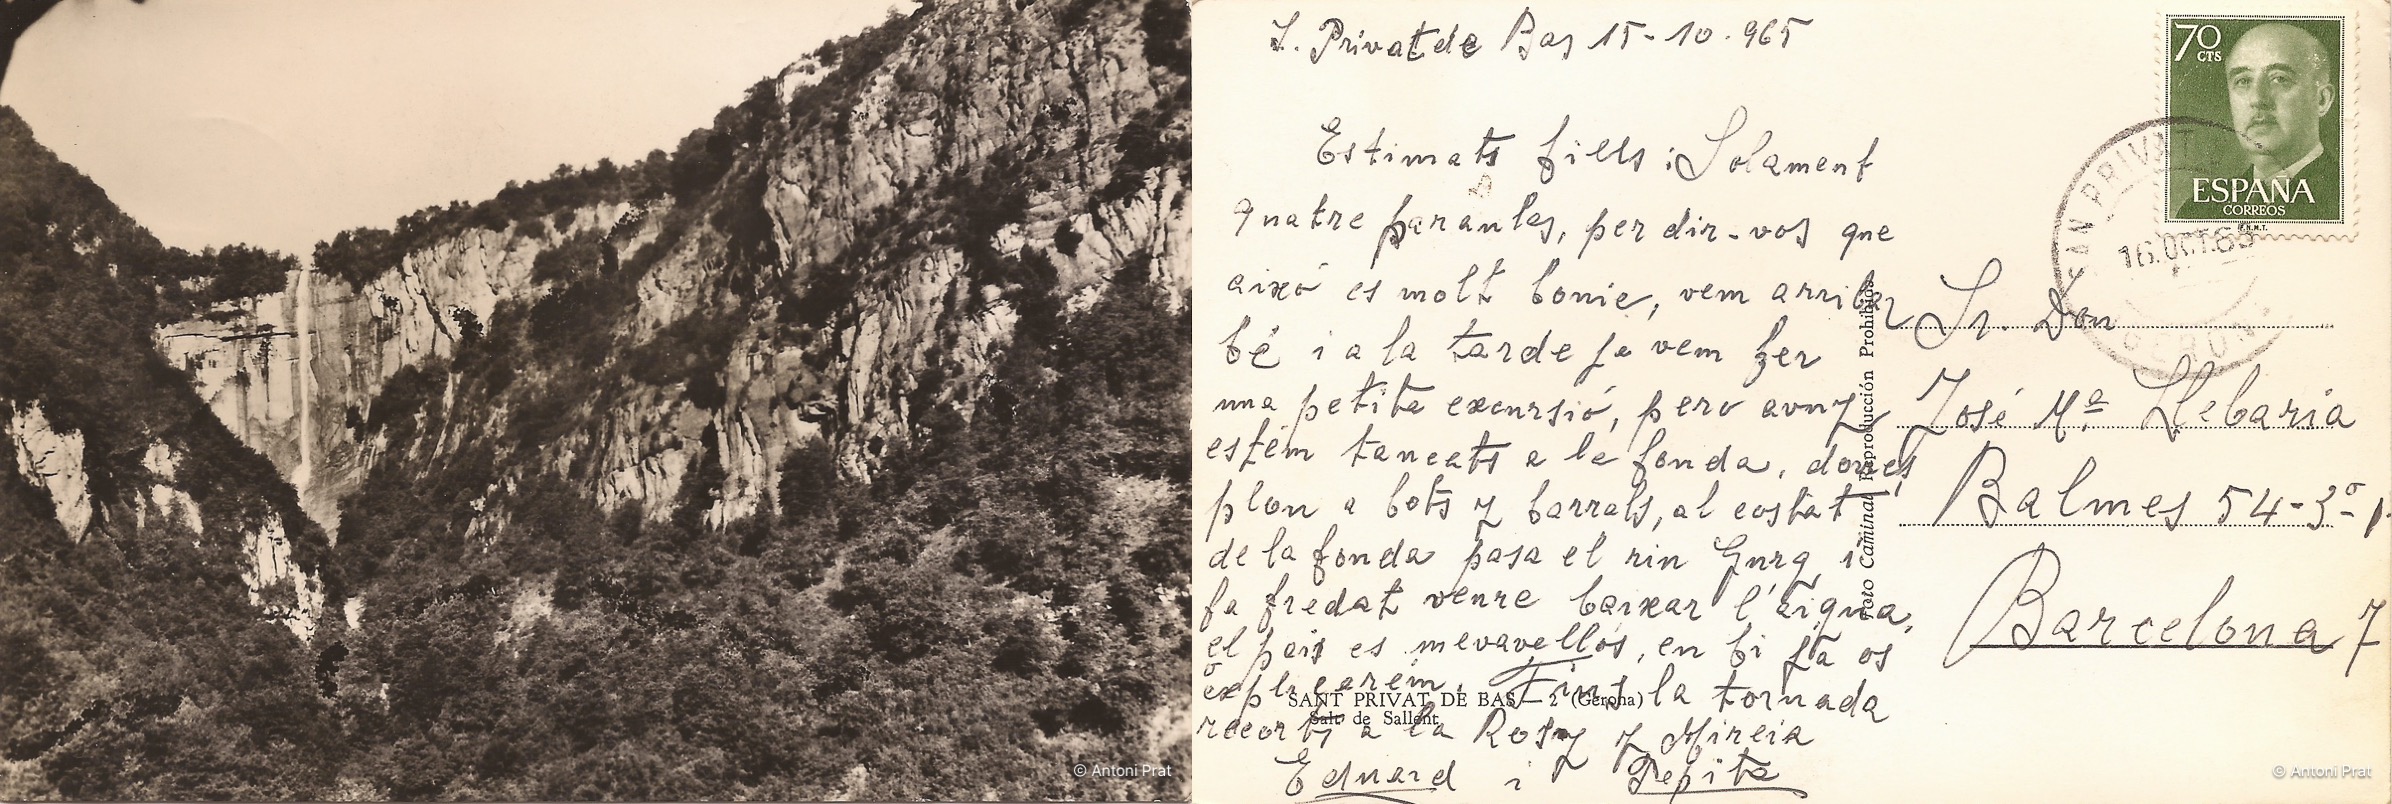 S. Privat de Bas 15-10-965
Estimats fills: Solament
quatre paraules, per dir-vos que
aixó es molt bonic, vem arribar
bé i a la tarde ja vem fer
una petita excursió, pero avuy
estém tancats a la fonda, doncs
plou a bots y barrals, al costat
de la fonda pasa el riu Gurg i
fa fredat veure baixar l'aigua,
el pais es mevavellós, en fi ja os
explicarém. Fins la tornada
recorts a la Rosa y Mireia
Eduard i Pepita
SANT PRIVAT DE BAS – 2 (Gerona)
Salt de Sallent
Foto Caminal Reproducción Prohibida
70 CTS
ESPAÑA
CORREOS
F.N.M.T.
SAN PRIVAT
16 OCT. 65
GERONA
Sr. Don
José Mª Llebaria
Balmes 54-3º 1
Barcelona 7
© Antoni Prat
© Antoni Prat